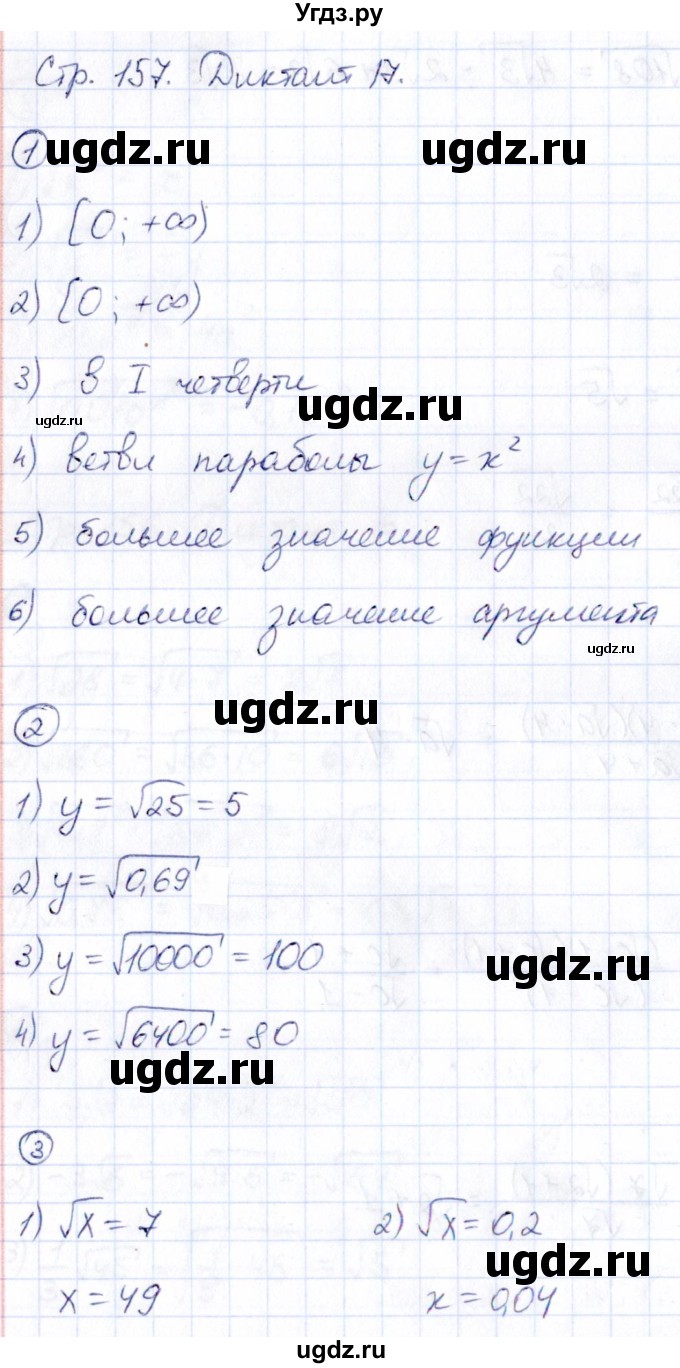 Угдз.ру
Стр. 157. Диктант 17.
1 ugdz.ru
1) [0; +∞)
2) [0; +∞)
3) в I четверти
ugdz.ru
ugdz.ru
4) ветвь параболы y = x²
5) большее значение функции
6) большее значение аргумента
ugdz.ru
ugdz.ru
2
1) y = √25 = 5
2) y = √0,69
3) y = √10000 = 100
ugdz.ru
4) y = √6400 = 80
ugdz.ru
3
1) √x = 7 2) √x = 0,2
ugdz.ru
x = 49 x = 0,04
ugdz.ru